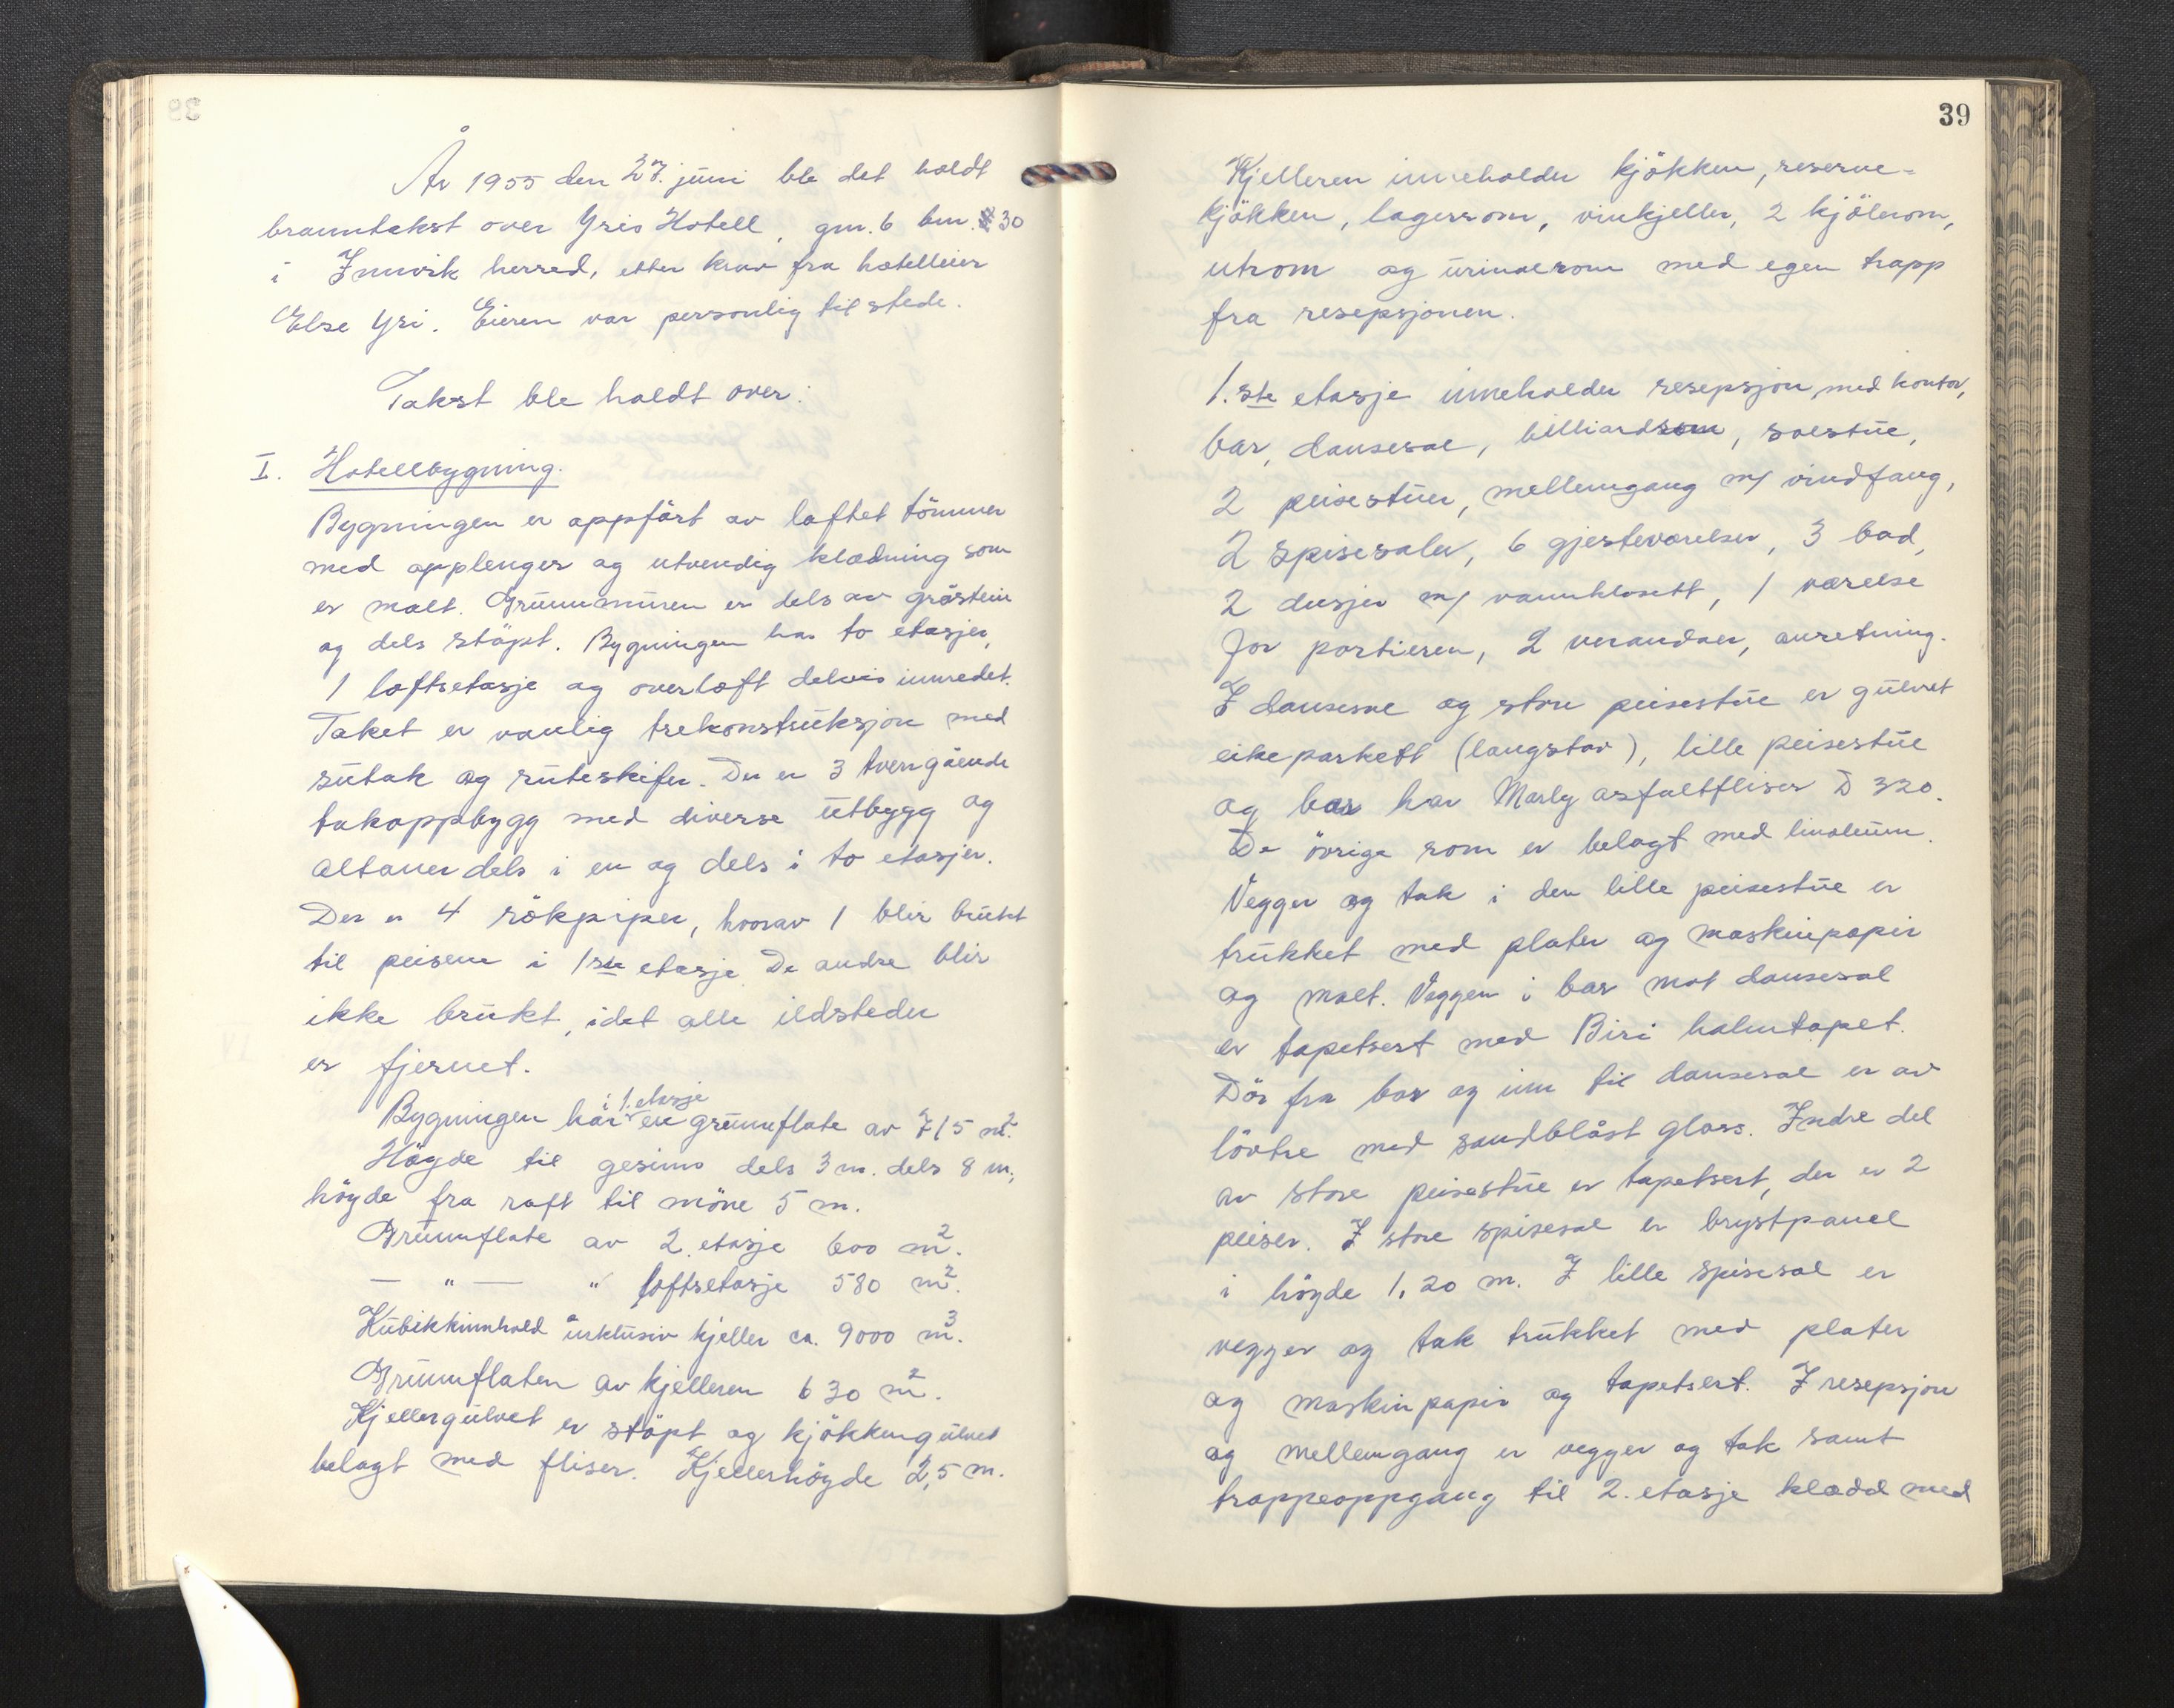 År 1955 den 27. juni ble det holdt
branntakst over Yris Hotell, gnr. 6 bnr. 30
i Innvik herred, etter krav fra hotelleier
Else Yri. Eieren var personlig tilstede.
Takst ble holdt over:
I. Hotellbygning.
Bygningen er oppført av laftet tömmer
med opplenger og utvendig klædning som
er malt. Grunnmuren er dels av gråstein
og dels stöpt. Bygningen har to etasjer,
1 loftsetasje og overloft delvis innredet.
Taket er vanlig trekonstruksjon med
sutak og ruteskifer. Der er 3 tverrgående
takoppbygg med diverse utbygg og
altaner dels i en og dels i to etasjer.
Der er 4 rökpiper, hvorav 1 blir brukt
til peisene i 1ste etasje. De andre blir
ikke brukt, idet alle ildsteder
er fjernet.
i 1. etasje
Bygningen har en grunnflate av 715 m².
Höyde til gesims dels 3 m. dels 8 m,
höyde fra raft til möne 5 m.
Grunnflate av 2. etasje 600 m².
— " — " loftsetasje 580 m².
Kubikkinnhold inklusiv kjeller ca. 9000 m³.
Grunnflaten av kjelleren 630 m².
Kjellergulvet er stöpt og kjökkengulvet
belagt med fliser. Kjellerhöyde 2,5 m.
39
Kjelleren inneholder kjökken, reserve-
kjökken, lagerrom, vinkjeller, 2 kjölerom,
utrom og urinalrom med egen trapp
fra resepsjonen.
1.ste etasje inneholder resepsjon, med kontor,
bar, dansesal, billiardrom, solstue,
2 peisestuer, mellemgang m/ vindfang,
2 spisesaler, 6 gjesteværelser, 3 bad,
2 dusjer m/ vannklosett, 1 værelse
for portieren, 2 verandaer, anretning.
I dansesal og store peisestue er gulvet
eikeparkett (langstav), lille peisestue
og bar har Marley asfaltfliser D 320.
De övrige rom er belagt med linoleum.
Vegger og tak i den lille peisestue er
trukket med plater og maskinpapir
og malt. Veggen i bar mot dansesal
er tapetsert med Biri halmtapet.
Dör fra bar og inn til dansesal er av
lövtre med sandblåst glass. Indre del
av store peisestue er tapetsert, der er 2
peiser. I store spisesal er brystpanel
i höyde 1,20 m. I lille spisesal er
vegger og tak trukket med plater
og maskinpapir og tapetsert. I resepsjon
og mellemgang er vegger og tak samt
trappeoppgang til 2. etasje klædd med